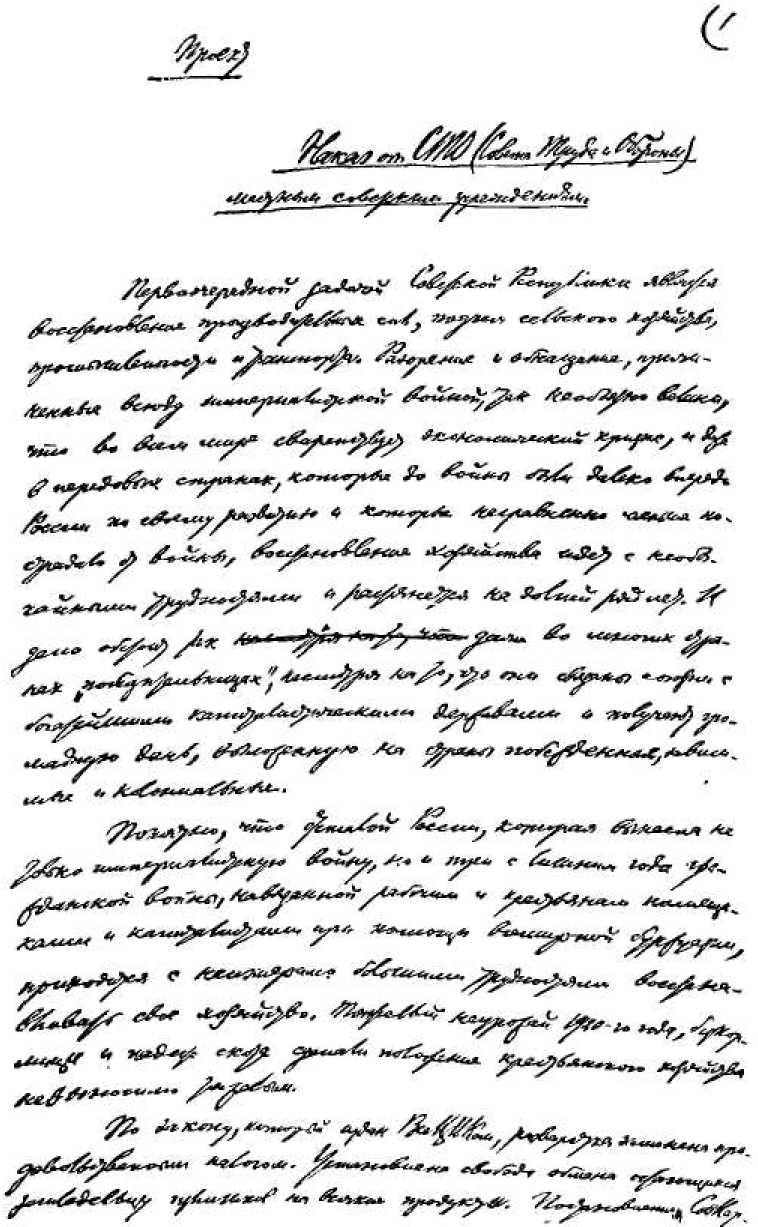 Проект
Наказ от СТО (Совета Труда и Обороны)
местным советским учреждениям.
Первоочередной задачей Советской Республики является
восстановление производительных сил, подъем сельского хозяйства,
промышленности и транспорта. Разорение и обнищание, причи-
ненные всюду империалистской войной, так необъятно велики,
что во всем мире свирепствует экономический кризис, и даже
в передовых странах, которые до войны были далеко впереди
России по своему развитию и которые несравненно меньше по-
страдали от войны, восстановление хозяйства идет с необы-
чайными трудностями и растянется на долгий ряд лет. И
дело обстоит так даже во многих стра-
нах „победительницах“, несмотря на то, что они связаны с
богатейшими капиталистическими державами и получают гро-
мадную дань, возложенную на страны побежденные, зависи-
мые и колониальные.
Понятно, что отсталой России, которая вынесла не
только империалистскую войну, но и три с лишним года гра-
жданской войны, навязанной рабочим и крестьянам помещи-
ками и капиталистами при помощи всемирной буржуазии,
приходится с неизмеримо большими трудностями восстана-
вливать свое хозяйство. Тяжелый неурожай 1920-го года, бескор-
мица и падеж скота сделали положение крестьянского хозяйства
невыносимо тяжелым.
По закону, который издан ВсеЦИКом, разверстка заменена про-
довольственным налогом. Установлена свобода обмена остающихся
земледельцу излишков на всякие продукты. Постановления СовНар-